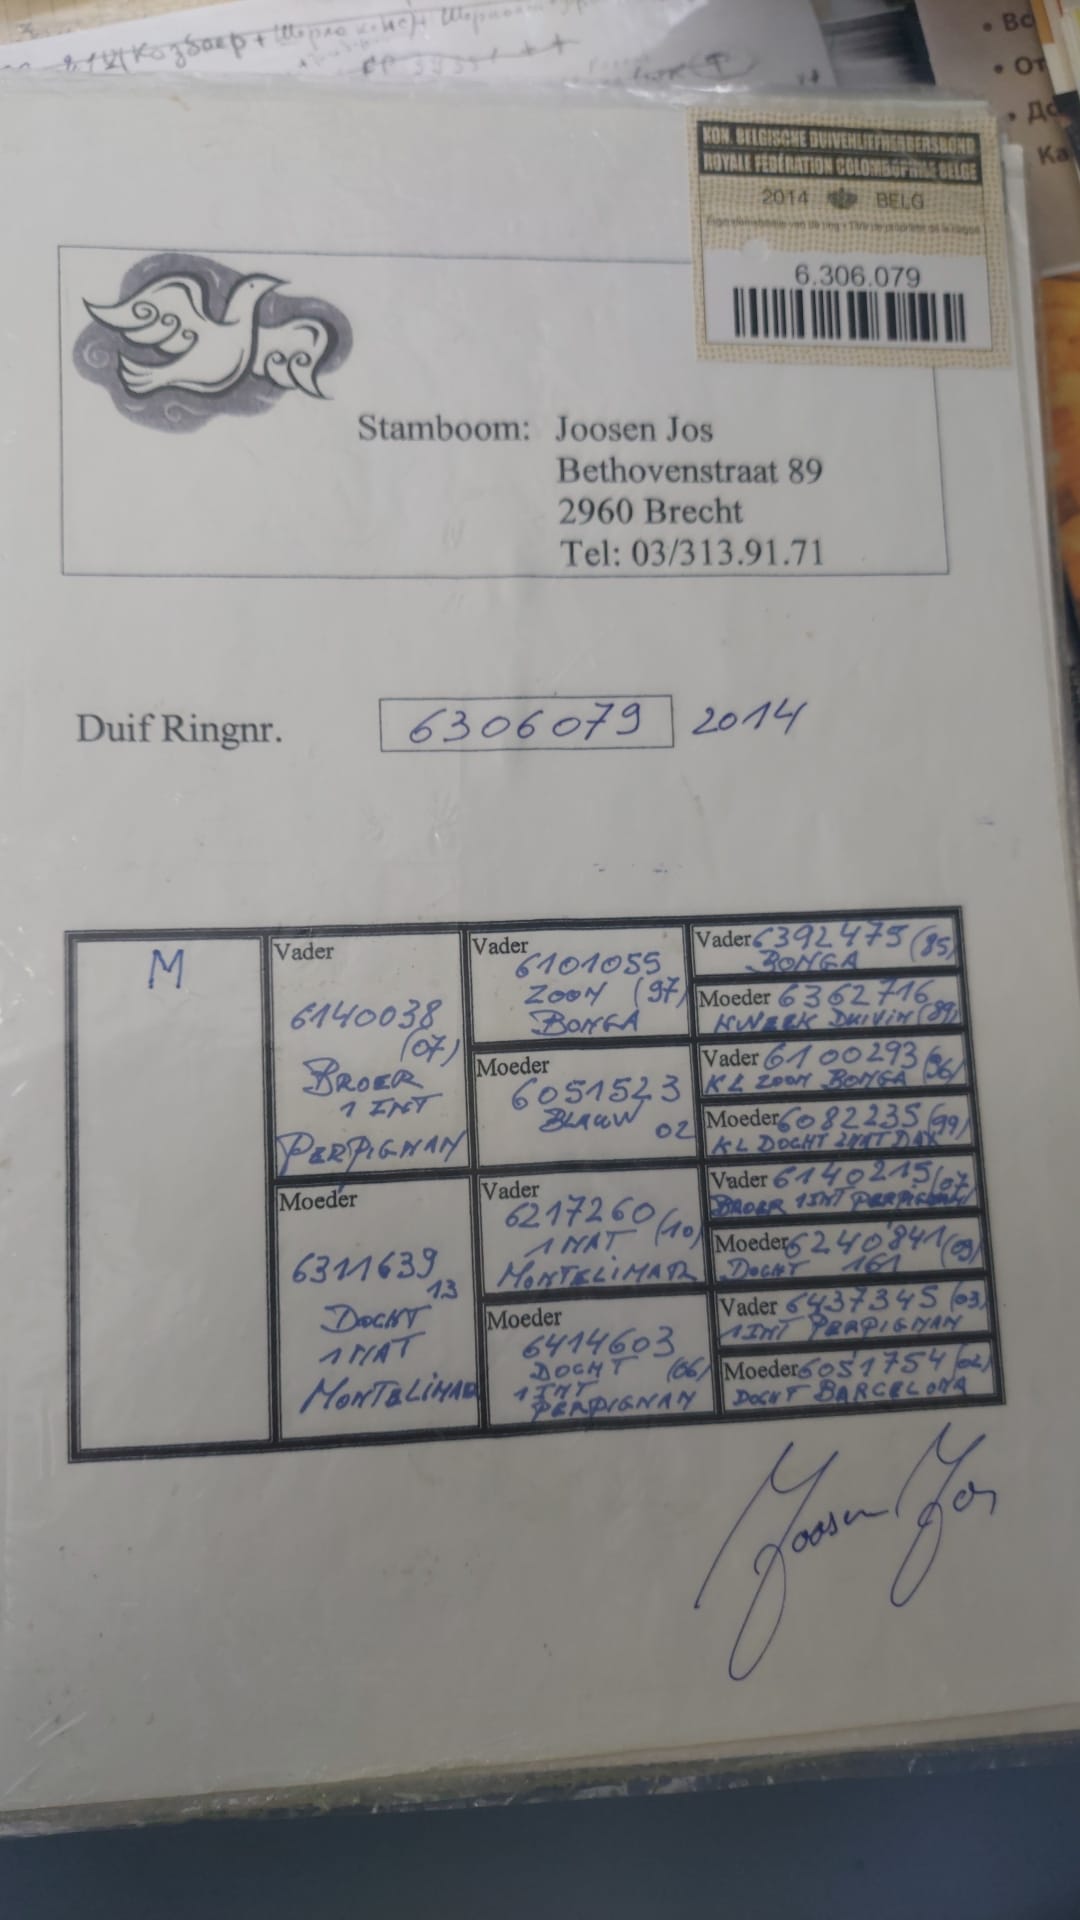 Козбаер + Шарло
• Вс
• От
• До
Ка
KON. BELGISCHE DUIVENLIEFHEBBERSBOND
ROYALE FÉDÉRATION COLOMBOPHILE BELGE
2014 BELG
6.306.079
Stamboom: Joosen Jos
Bethovenstraat 89
2960 Brecht
Tel: 03/313.91.71
Duif Ringnr. 6306079 2014
M
Vader
6140038
(07)
BROER
1 INT
PERPIGNAN
Moeder
6311639
13
DOCHT
1 NAT
MONTELIMAR
Vader
6101055
ZOON (97)
BONGA
Moeder
6051523
BLAUW 02
Vader
6217260 (10)
1 NAT
MONTELIMAR
Moeder
6414603
DOCHT (06)
1 INT
PERPIGNAN
Vader 6392475 (85)
BONGA
Moeder 6362716
KWEEK DUIVIN (89)
Vader 6100293 (96)
KL ZOON BONGA
Moeder 6082235 (99)
KL DOCHT 2NAT DAX
Vader 6140215 (07
BROER 1INT PERPIGNAN
Moeder 6240841 (09)
DOCHT 161
Vader 6437345 (03)
1INT PERPIGNAN
Moeder 6051754 (02)
DOCHT BARCELONA
Joosen Jos